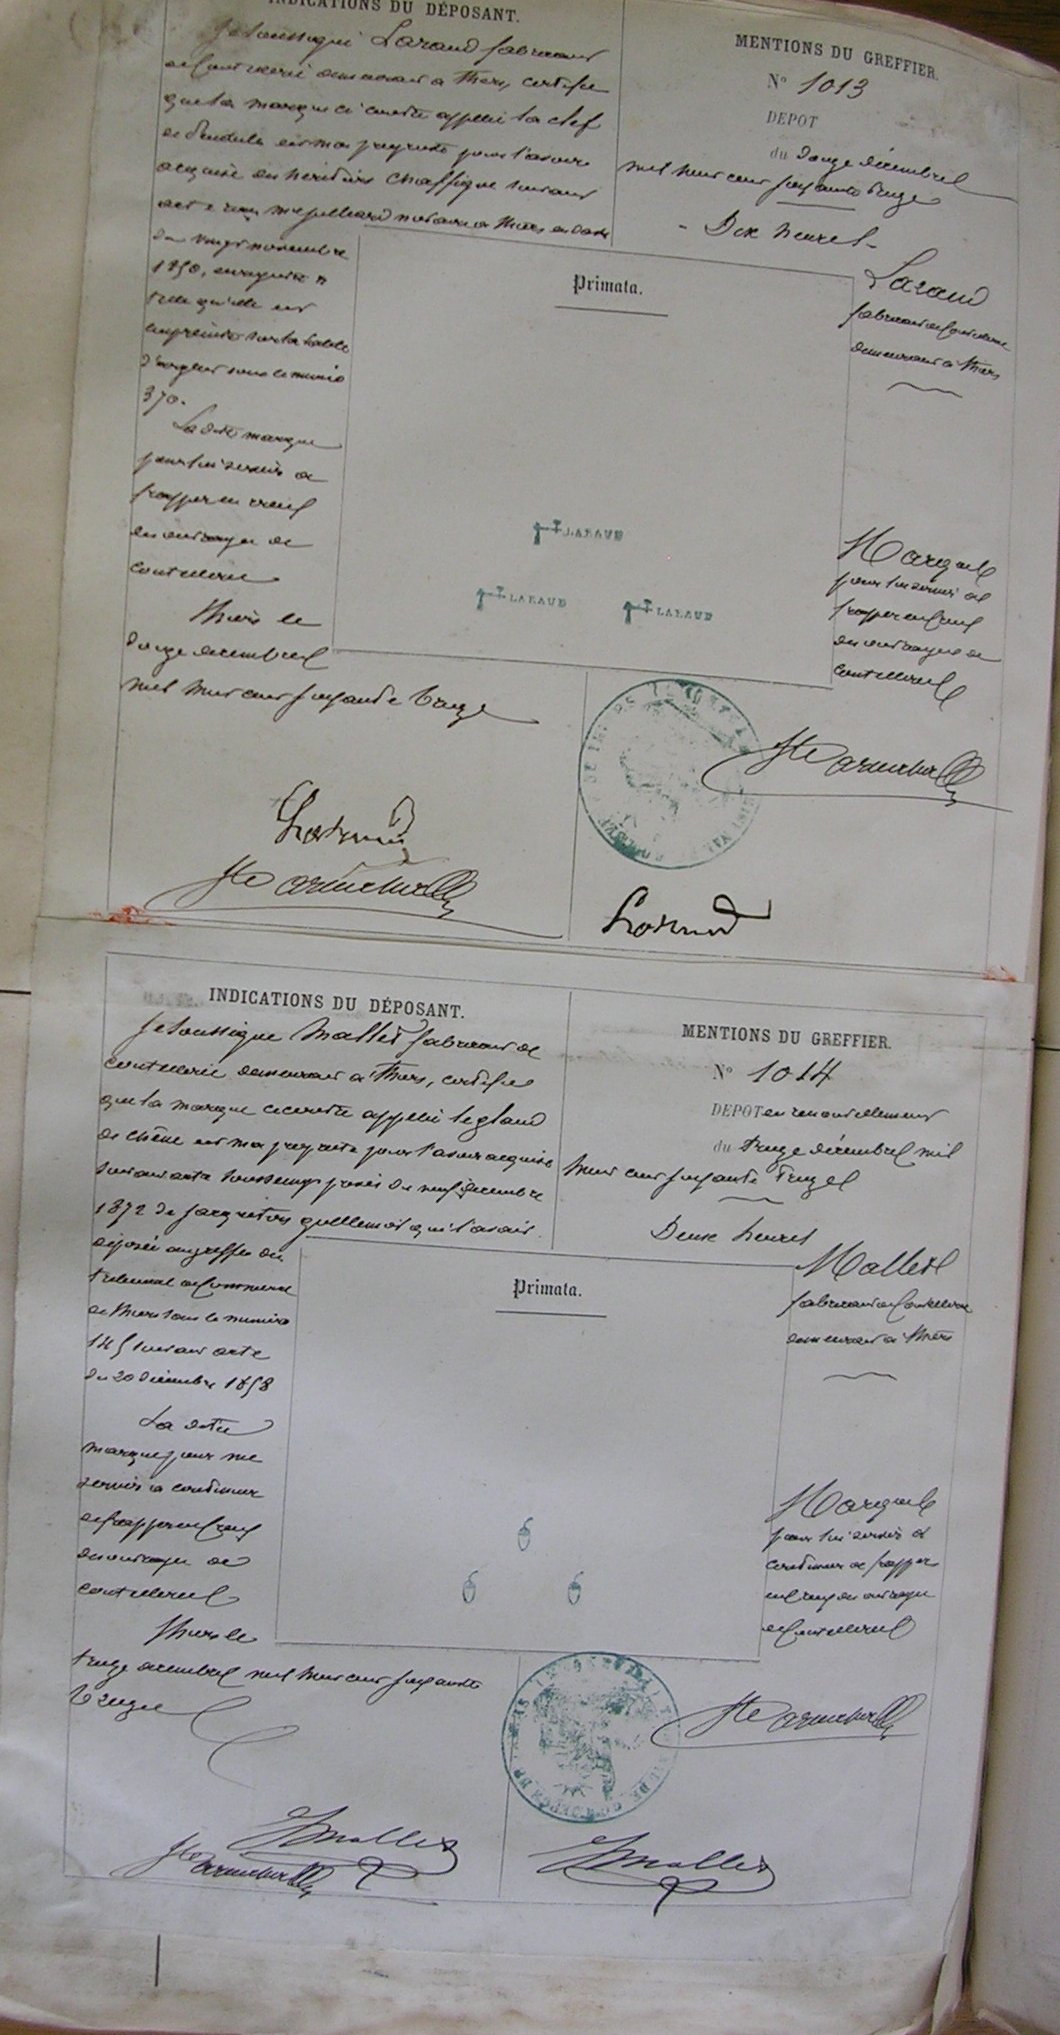 INDICATIONS DU DÉPOSANT.
Je soussigné Laraud fabricant
de Coutellerie demeurant à Thiers, certifie
que la marque ci contre appelée la clef
de Pendule est ma propriété pour l'avoir
acquise des héritiers Chassigne suivant
acte reçu Me notaire à Thiers en date
du vingt novembre
1850, enregistré &
telle qu'elle est
empreinte sur la table
d'argent sous le numéro
370.
La dite marque
pour lui servir de
frapper en creux
des ouvrages de
coutellerie
Thiers le
douze décembre
mil huit cent soixante treize
MENTIONS DU GREFFIER.
N° 1013
DEPOT
du douze décembre
mil huit cent soixante treize
- Dix heures -
Primata.
Laraud
fabricant de Coutellerie
demeurant à Thiers
LARAUD
LARAUD
LARAUD
Marque
pour lui servir de
frapper en creux
des ouvrages de
coutellerie
Laraud
INDICATIONS DU DÉPOSANT.
Je soussigné Mallet fabricant de
coutellerie demeurant à Thiers, certifie
que la marque ci contre appelée le gland
de chêne est ma propriété pour l'avoir acquise
suivant acte sous seing privé du neuf décembre
1872 de qui l'avait
déposée au greffe du
tribunal de Commerce
de Thiers sous le numéro
145 suivant acte
du 20 décembre 1858
La dite
marque pour me
servir à continuer
de frapper en creux
des ouvrages de
coutellerie
Thiers le
treize décembre mil huit cent soixante
treize
MENTIONS DU GREFFIER.
N° 1014
DEPOT en renouvellement
du treize décembre mil
huit cent soixante treize
Deux heures
Primata.
Mallet
fabricant de Coutellerie
demeurant à Thiers
Marque
pour lui servir à
continuer de frapper
en creux des ouvrages
de Coutellerie
Mallet
Mallet